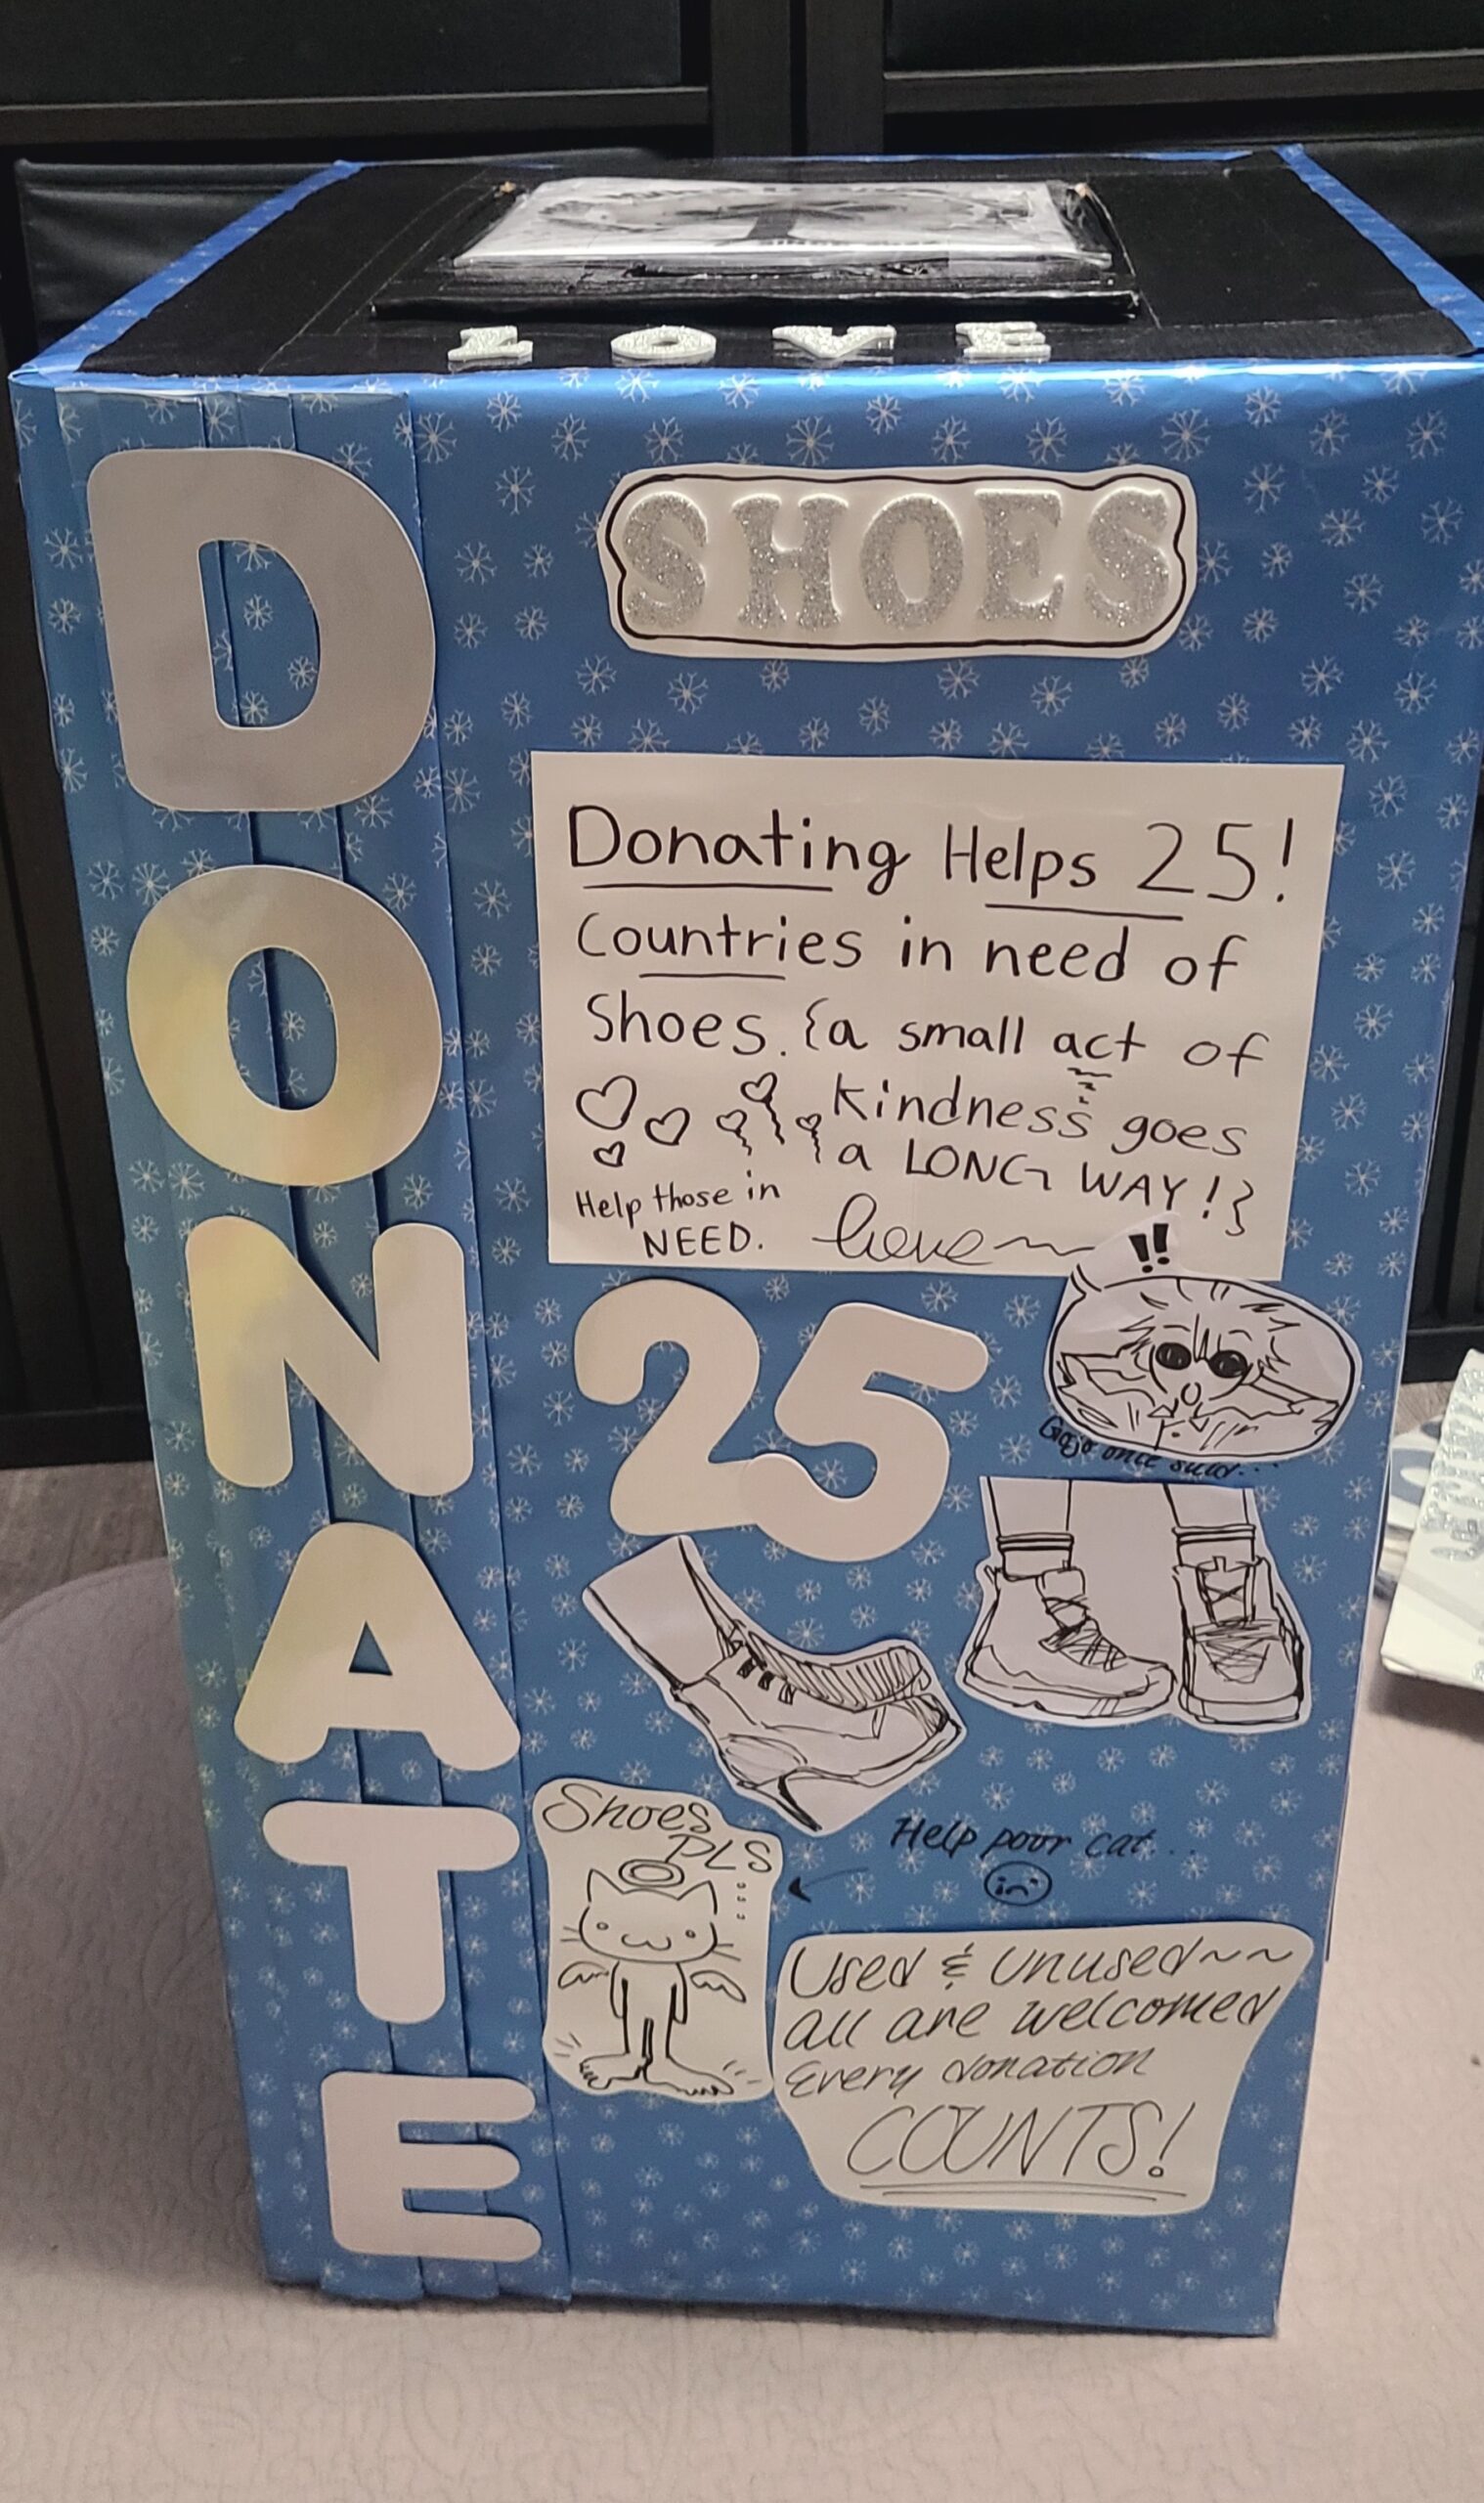 LOVE
DONATE
SHOES
Donating Helps 25!
Countries in need of
Shoes. {a small act of
kindness goes
a LONG WAY!}
Help those in
NEED.
!!
25
Gojo once said...
Shoes
PLS
....
Help poor cat...
Used & Unused~~
all are welcomed
Every donation
COUNTS!